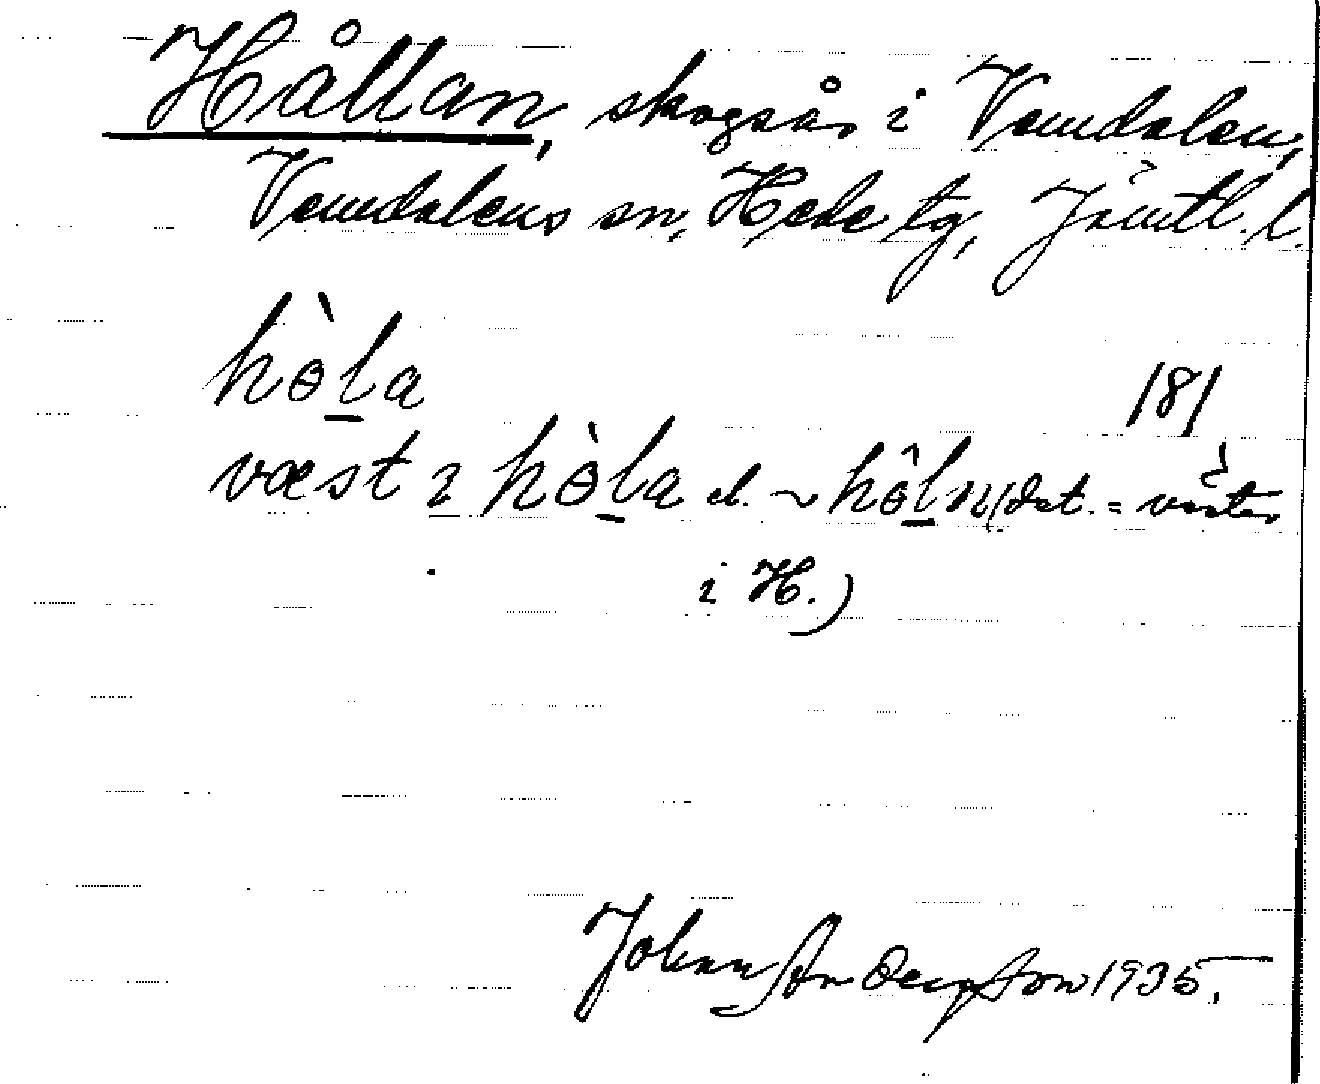 Hållan, skogsås i Vemdalen,
Vemdalens sn, Hede tg, Jämtl. l.
hò̀l̠a
181
væst ı hɵ̀l̠a el. ~ hɵ̂l̠n (dat. = väster
i H.)
Johan Anderson 1935.